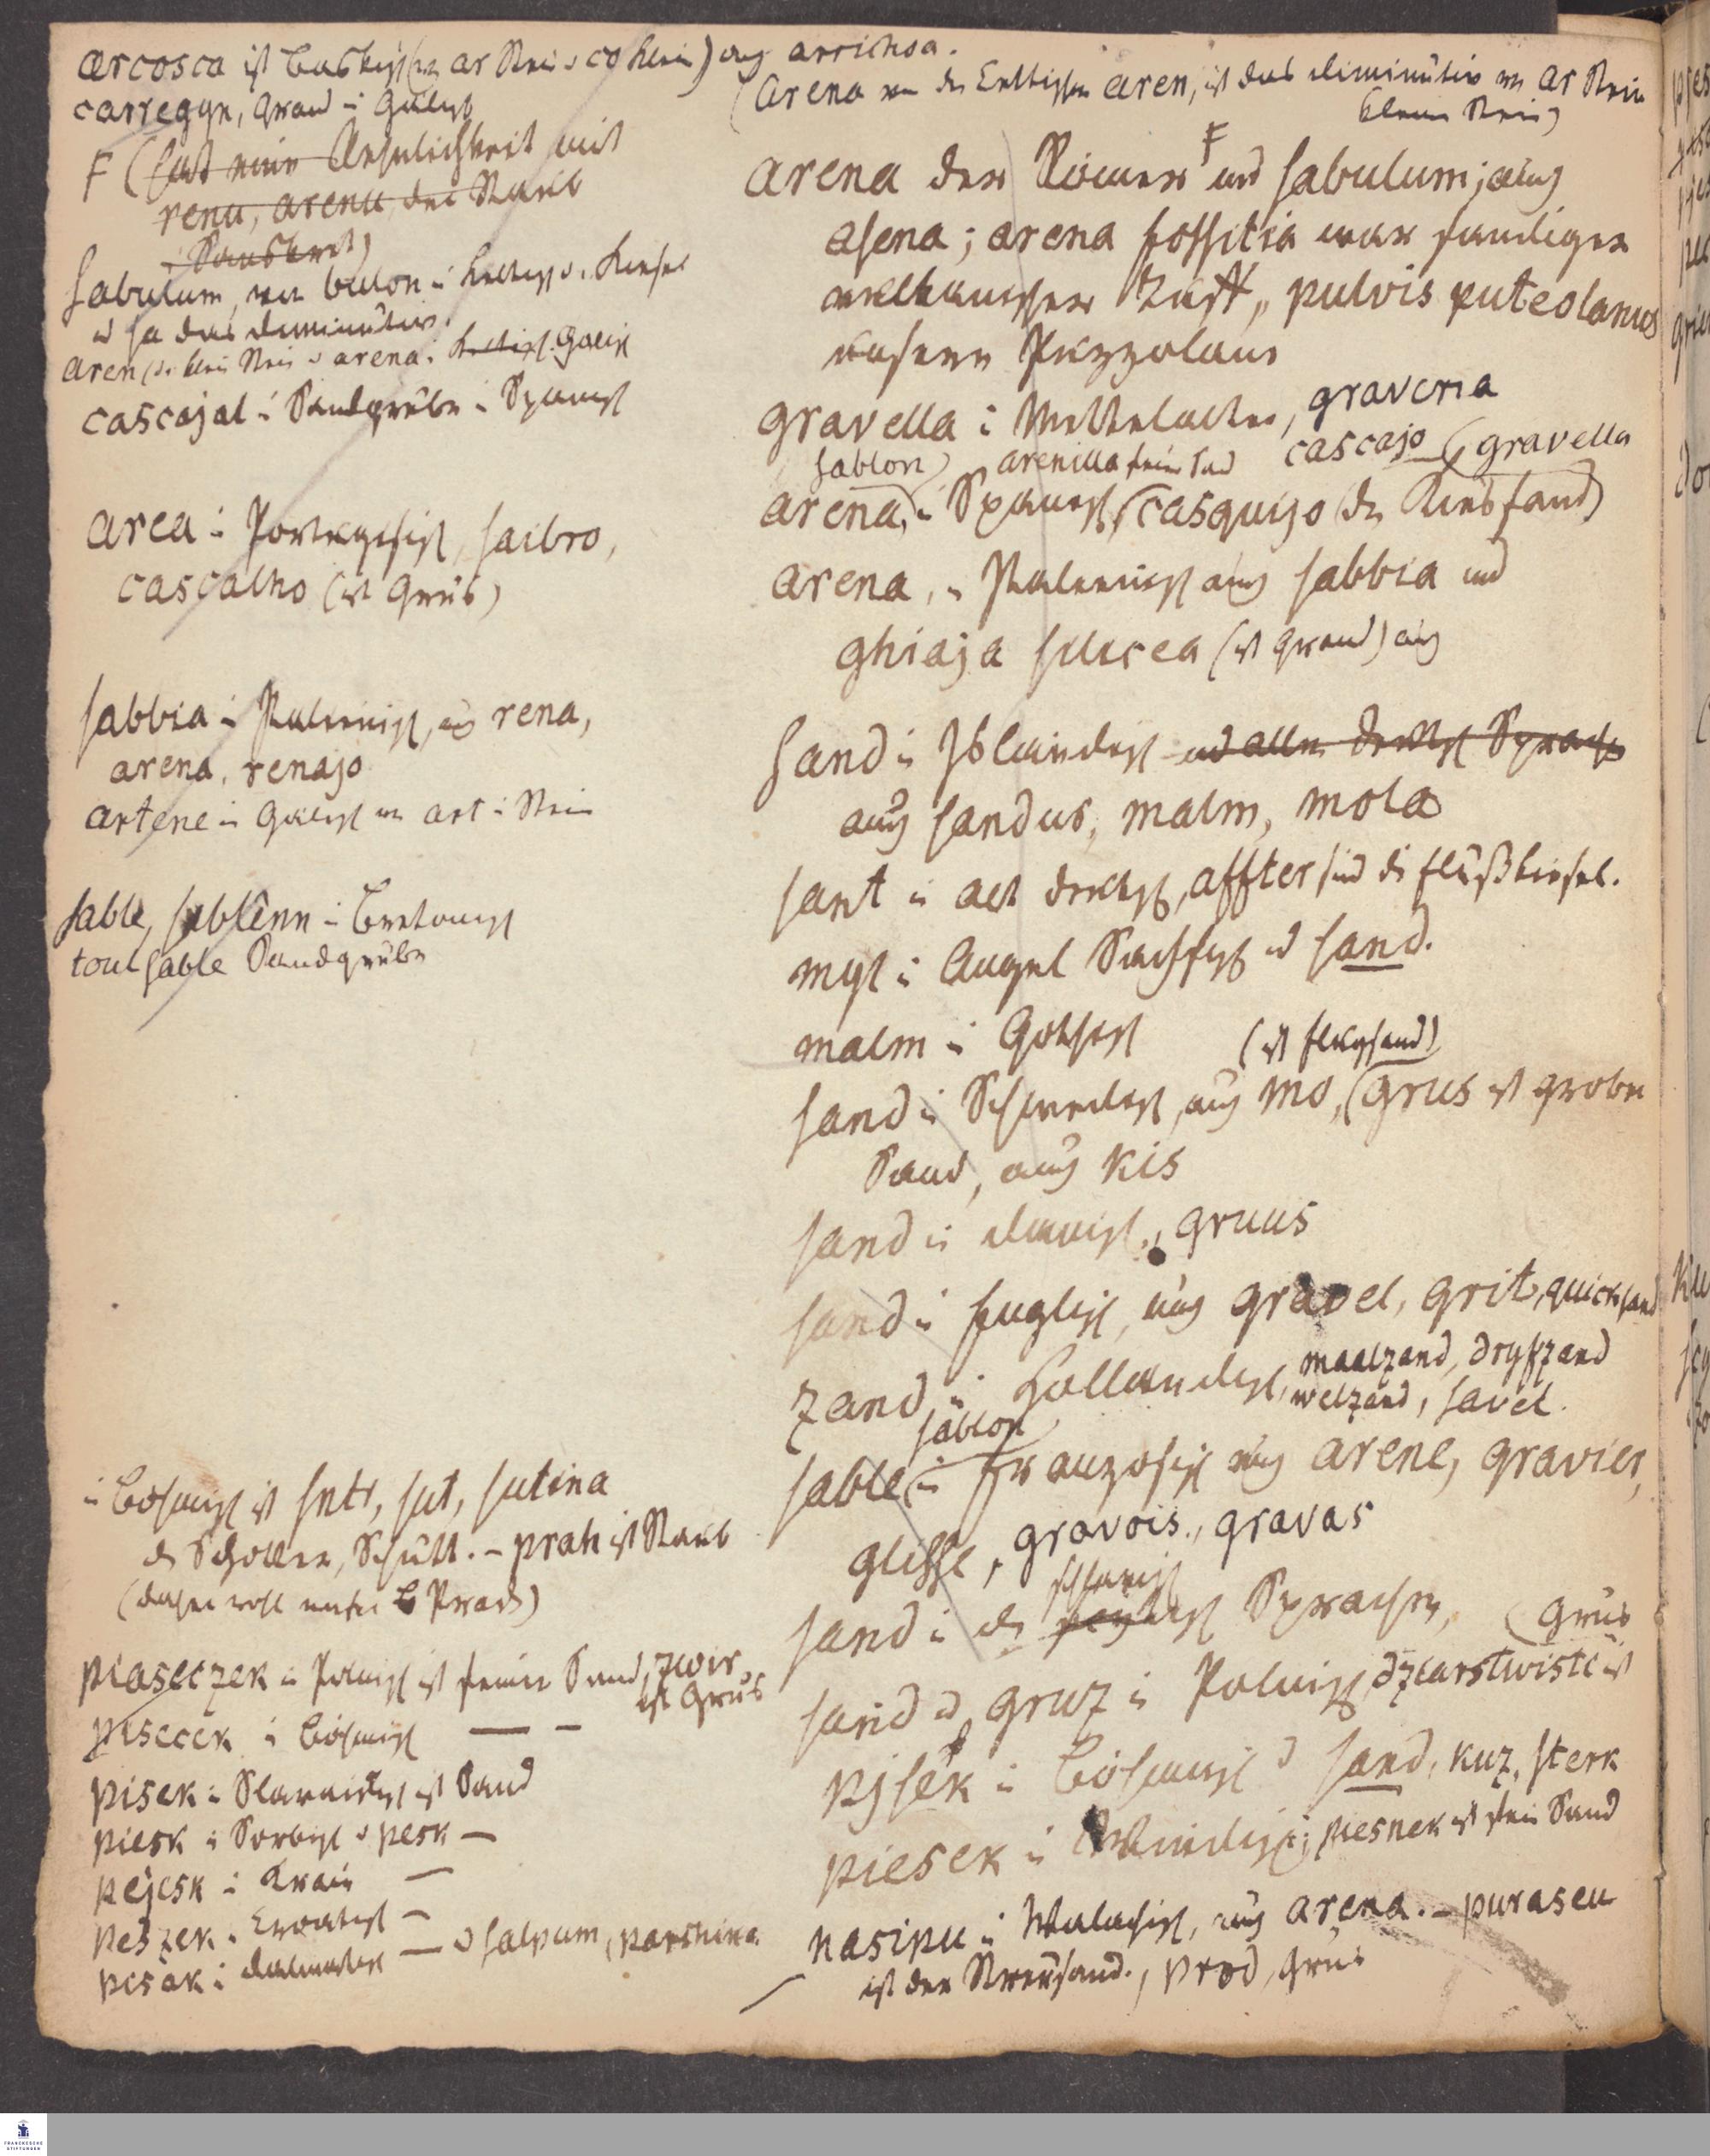 arcosca ist Baskisch (von ar Stein u co klein) auch arrichoa.
carregyn, Grand in Galisch
F (hat eine Aehnlichkeit mit
renu, arenu der Staub
Sanskrit)
sabulum, von balon in Keltisch u. Kiesel
u sa das diminutiv.
aren (ist klein Stein u arena. Keltisch. Galisch
cascajal in Sandgrube in Spanisch
area in Portugisisch, saibro,
cascalho (ist Grus)
sabbia in Italienisch, auch rena,
arena, renajo
artene in Galisch von art in Stein
sable, sablenn in Bretonisch
toul sable Sandgrube
in Bohmisch ist sut, sutina
der Schotter, Schutt. - prah ist Staub
(daher wohl unser Prach)
piaseczek in Polnisch ist feiner Sand, zwir
ist Grus
pisecek in Böhmisch — —
pisek in Slavonisch ist Sand
piesk in Sorbisch u pesk —
pejesk in Krain —
peszek in Croatisch —
pisak in dalmatisch — u salpum, parshina
(arena von der Celtischen aren, ist das diminutiv von ar Stein
klein Stein)
arena der Römer F und sabulum; auch
asena; arena fossitia war sandiger
vulkanischer Tuff, pulvis puteolanus
unsere Puzzolane
gravella in Mittelalter, graveria
sablon) arenilla fein Sand cascajo (gravella
arena, in Spanisch, (casquijo (der Kiessand)
arena, in Italienisch auch sabbia und
ghiaja silicea (ist Grand) auch
sand in Isländisch und allen deutsch Sprachen
auch sandus, malm, mola
sant in alt deutsch, affter sind die flußkiesel.
myl in Angel Sachsisch u sand.
malm in Gothisch
(ist flugsand)
sand in Schwedisch, auch mo, (grus ist grober
Sand, auch kis
sand in dänisch, gruus
sand in Englisch, auch gravel, grit, quicksand
zand in Hollandisch, maalzand, dryfzand
welzand, savel.
sablon
sable in französisch auch arene, gravier,
glisse, gravois, gravas
sand in der Sprachen, (Grus
sand u gruz in Polnisch, dziarstwiste ist
pjsek in Böhmisch u sand, kuz, sterk
piesek in Windisch; piesnek ist fein Sand
nasipu in Walachisch, auch arena. - puraseu
ist der Streusand., prod, Grus
FRANCKESCHE
STIFTUNGEN